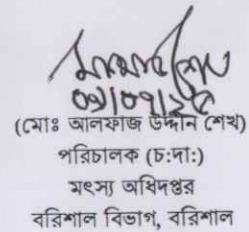 ০১/০৭/২৫
(মোঃ আলফাজ উদ্দীন শেখ)
পরিচালক (চ:দা:)
মৎস্য অধিদপ্তর
বরিশাল বিভাগ, বরিশাল